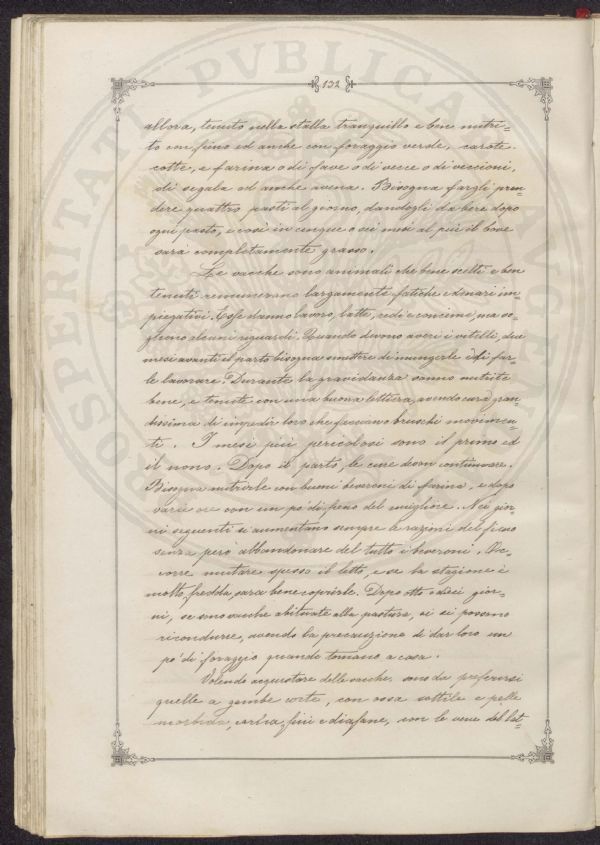 132
allora, tenuto nella stalla tranquillo e ben nutri-
to con fieno ed anche con foraggio verde, carote
cotte, e farina o di fave o di vecce o di veccioni,
di segala ed anche avena. Bisogna fargli pren-
dere quattro pasti al giorno, dandogli da bere dopo
ogni pasto, e così in cinque o sei mesi al più il bove
sarà completamente grasso.
Le vacche sono animali che bene scelti e ben
tenuti remunerano largamente fatiche e denari im-
piegativi. Esse danno lavoro, latte, redi e concime, ma vo-
gliono alcuni riguardi. Quando devono avere i vitelli, due
mesi avanti il parto bisogna smettere di mungerle e di far-
le lavorare. Durante la gravidanza vanno nutrite
bene, e tenute con una buona lettiera, avendo cura gran-
dissima di impedir loro che facciano bruschi movimen-
ti. I mesi più pericolosi sono il primo ed
il nono. Dopo il parto, le cure devon continuare.
Bisogna nutrirle con buoni beveroni di farina, e dopo
varie ore con un po' di fieno del migliore. Nei gior-
ni seguenti si aumentano sempre le razioni del fieno
senza però abbandonare del tutto i beveroni. Oc-
corre mutare spesso il letto, e se la stagione è
molto fredda, sarà bene coprirle. Dopo otto o dieci gior-
ni, se sono vacche abituate alla pastura, vi si possono
ricondurre, avendo la precauzione di dar loro un
po' di foraggio quando tornano a casa.
Volendo acquistare delle vacche sono da preferirsi
quelle a gambe corte, con ossa sottili e pelle
morbida, fini e diafane, con le vene del lat-
PROSPERITATI PVBLICAE AVGENDAE